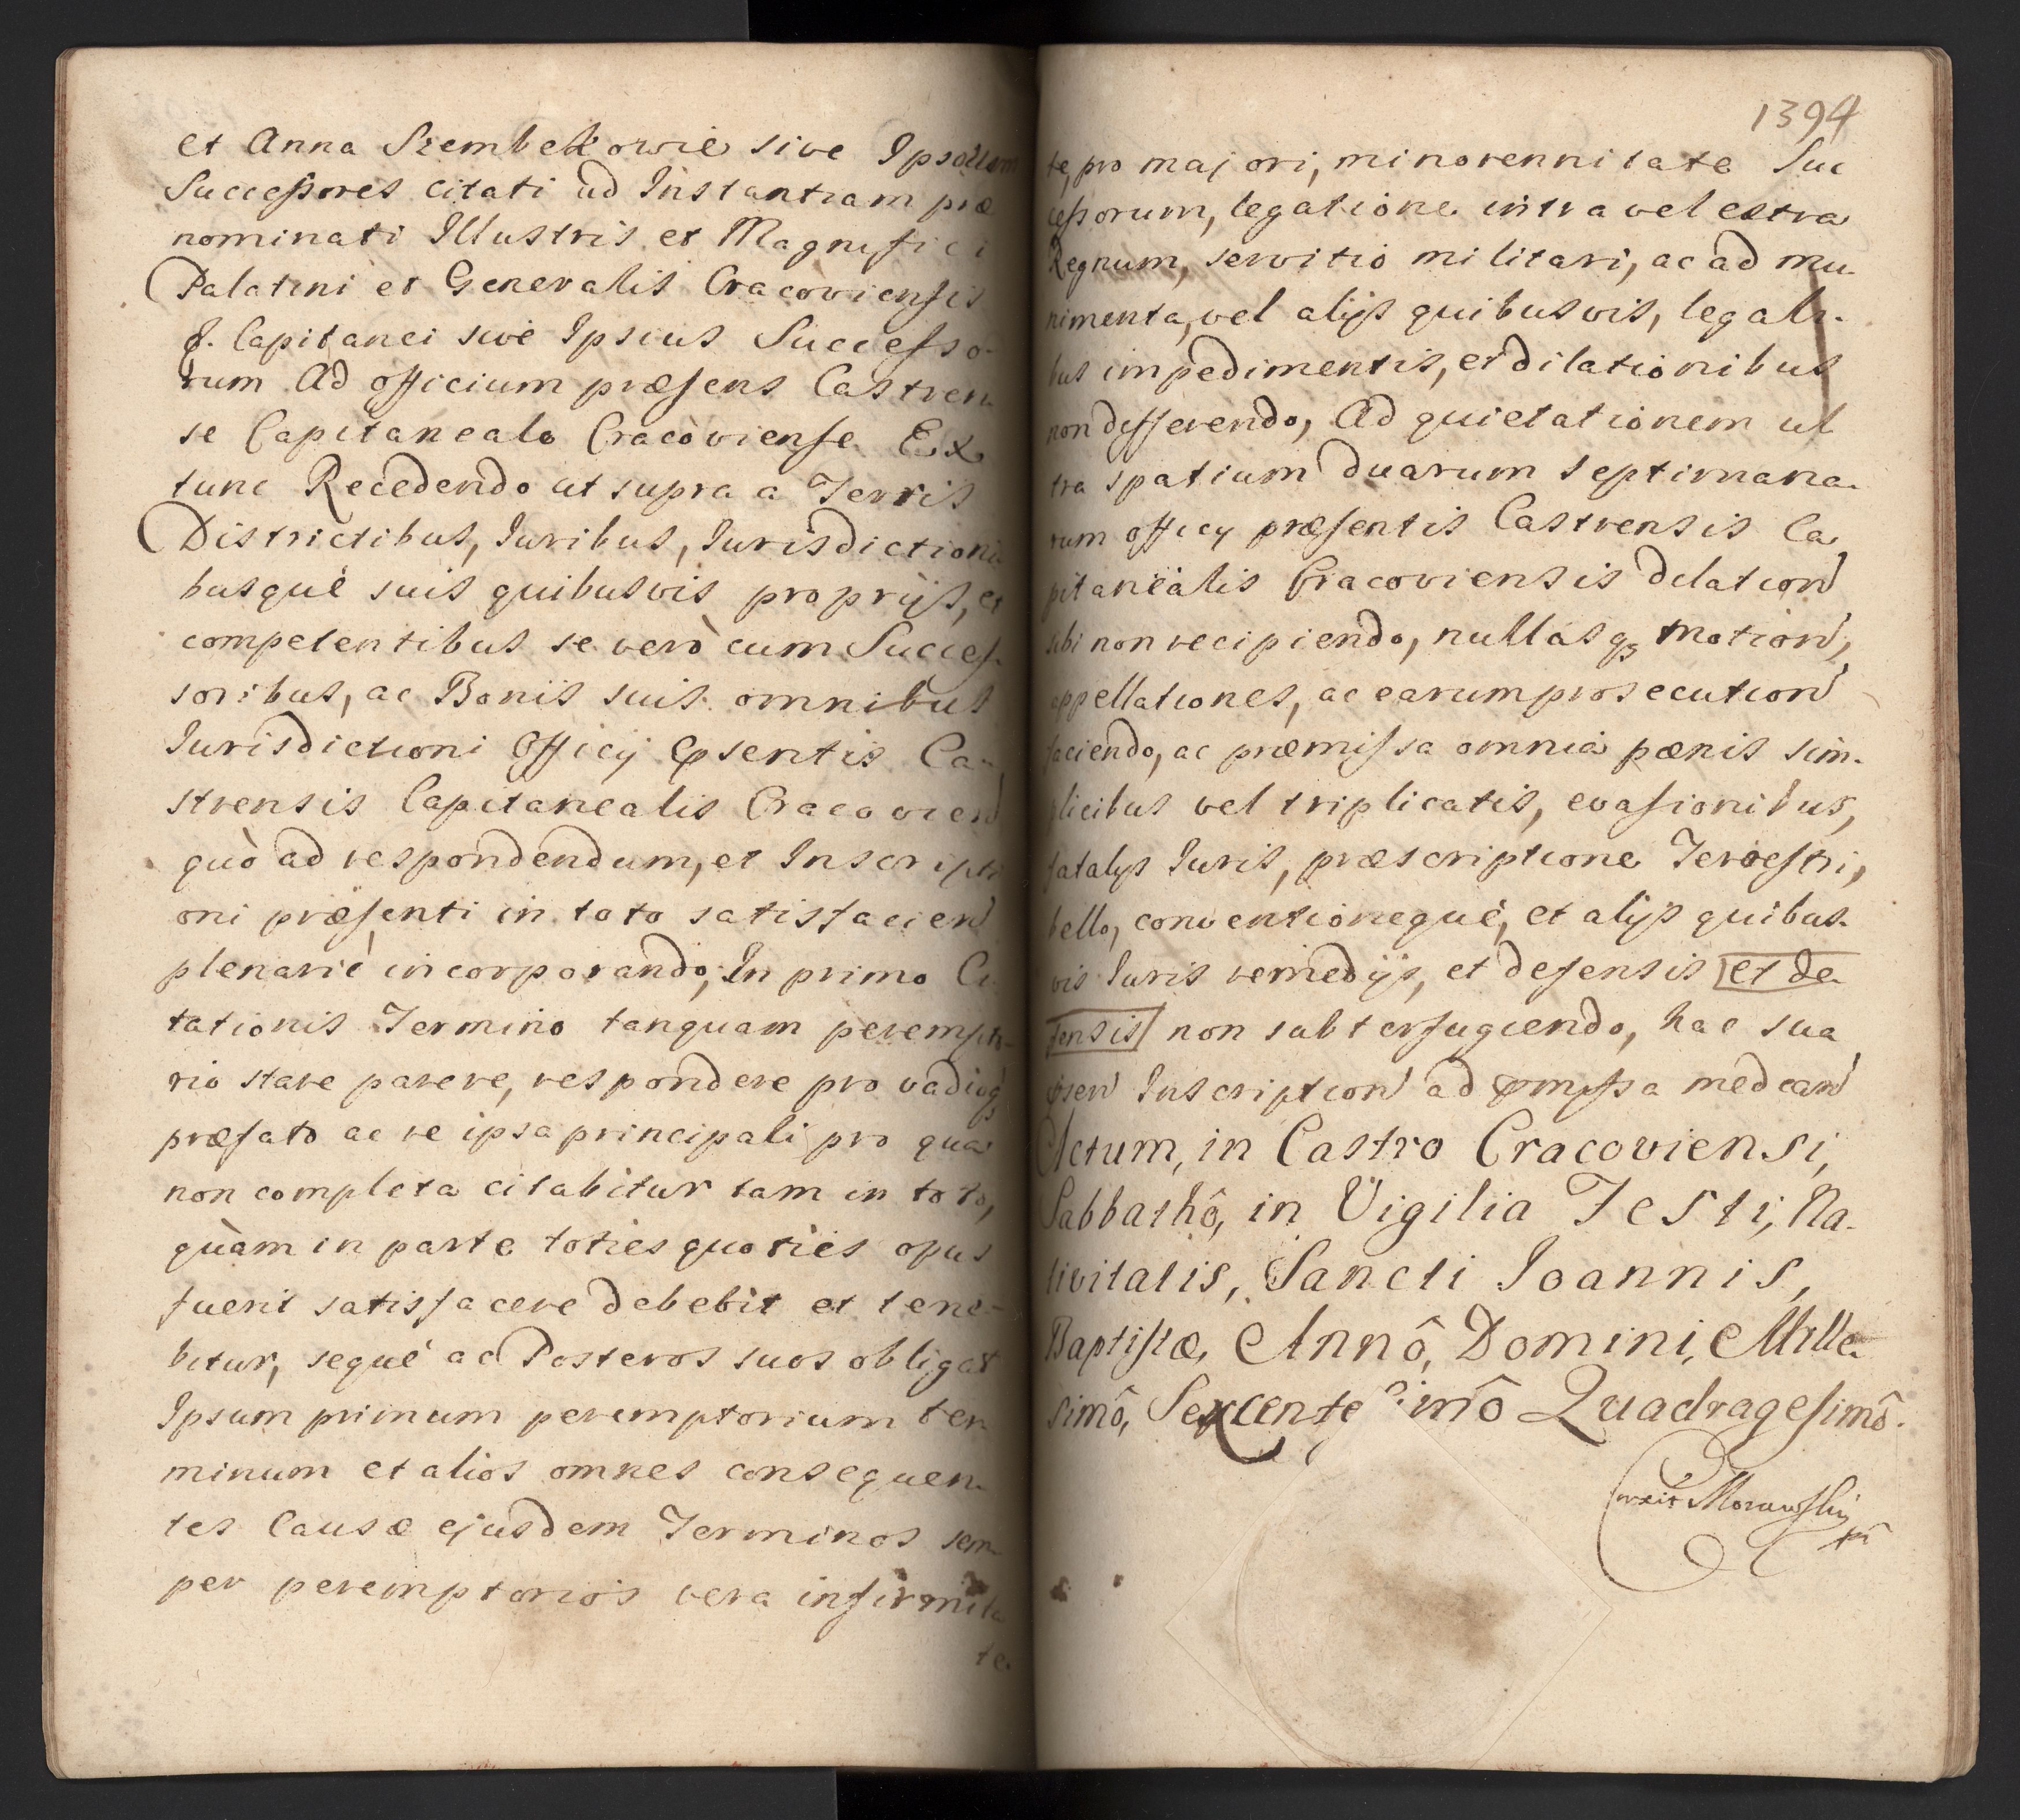 et Anna Szembekowie sive Ipsorum
Successores citati ad Instantiam præ
nominati Illustris et Magnifici
Palatini et Generalis Cracoviensis
G. Capitanei sive Ipsius Successo-
rum Ad officium præsens Castren-
se Capitaneale Cracoviense Ex
tunc Recedendo ut supra a Terris
Districtibus, Iuribus, Iurisdictioni
busquè suis quibusvis proprijs, et
competentibus se verò cum Succes-
soribus, ac Bonis suis omnibus
Iurisdictioni Officij psentis Ca-
strensis Capitanealis Cracovien
quò ad respondendum, et Inscripti
oni præsenti in toto satisfacien
plenariè incorporando; In primo Ci
tationis Termino tanquam perempto-
rio stare parere, respondere pro vadioq
præfato ac re ipsa principali pro qua
non completa citabitur tam in toto,
quàm in parte toties quoties opus
fuerit satisfacere debebit et tene-
bitur, sequè ac Posteros suos obligat
Ipsum primum peremptorium ter-
minum et alios omnes consequen-
tes Causæ ejusdem Terminos sem-
per peremptorios vera infirmita
te
1394
te, pro majori, minorennitate Suc
cessorum, legatione intra vel extra
Regnum, servitio militari, ac ad mu-
nimenta, vel alijs quibusvis, legali-
bus impedimentis, et dilationibus
non differendo, Ad quietationem ul
tra spatium duarum septimana-
rum officij præsentis Castrensis Ca
pitanealis Cracoviensis dilation
sibi non recipiendo, nullasq; motion,
appellationes, ac earum prosecution
faciendo, ac præmissa omnia pænis sim-
plicibus vel triplicatis, evasionibus,
fatalijs Iuris, præscriptione Terrestri,
bello, conventionequè, et alijs quibus-
vis Iuris remedijs, et defensis et de
fensis non subterfugiendo, hac sua
psen Inscription ad pmissa median
Actum, in Castro Cracoviensi,
Sabbathô, in Vigilia Festi, Na-
tivitatis, Sancti Ioannis,
Baptistæ, Annô, Domini, Mille-
simô, Sexcentesimô Quadragesimô.
Morawski